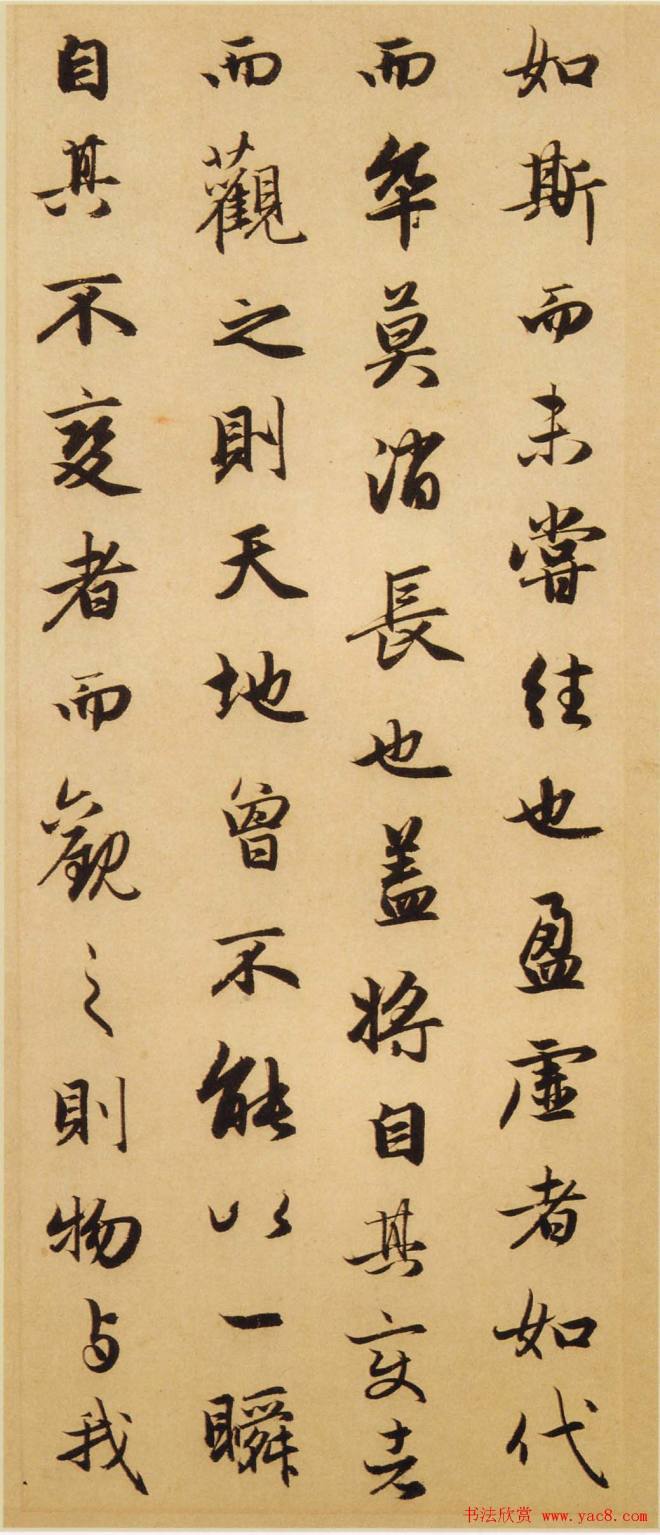 如斯而未嘗往也盈虛者如代
而卒莫消長也蓋將自其變者
而觀之則天地曾不能以一瞬
自其不變者而觀之則物與我
书法欣赏 www.yac8.com